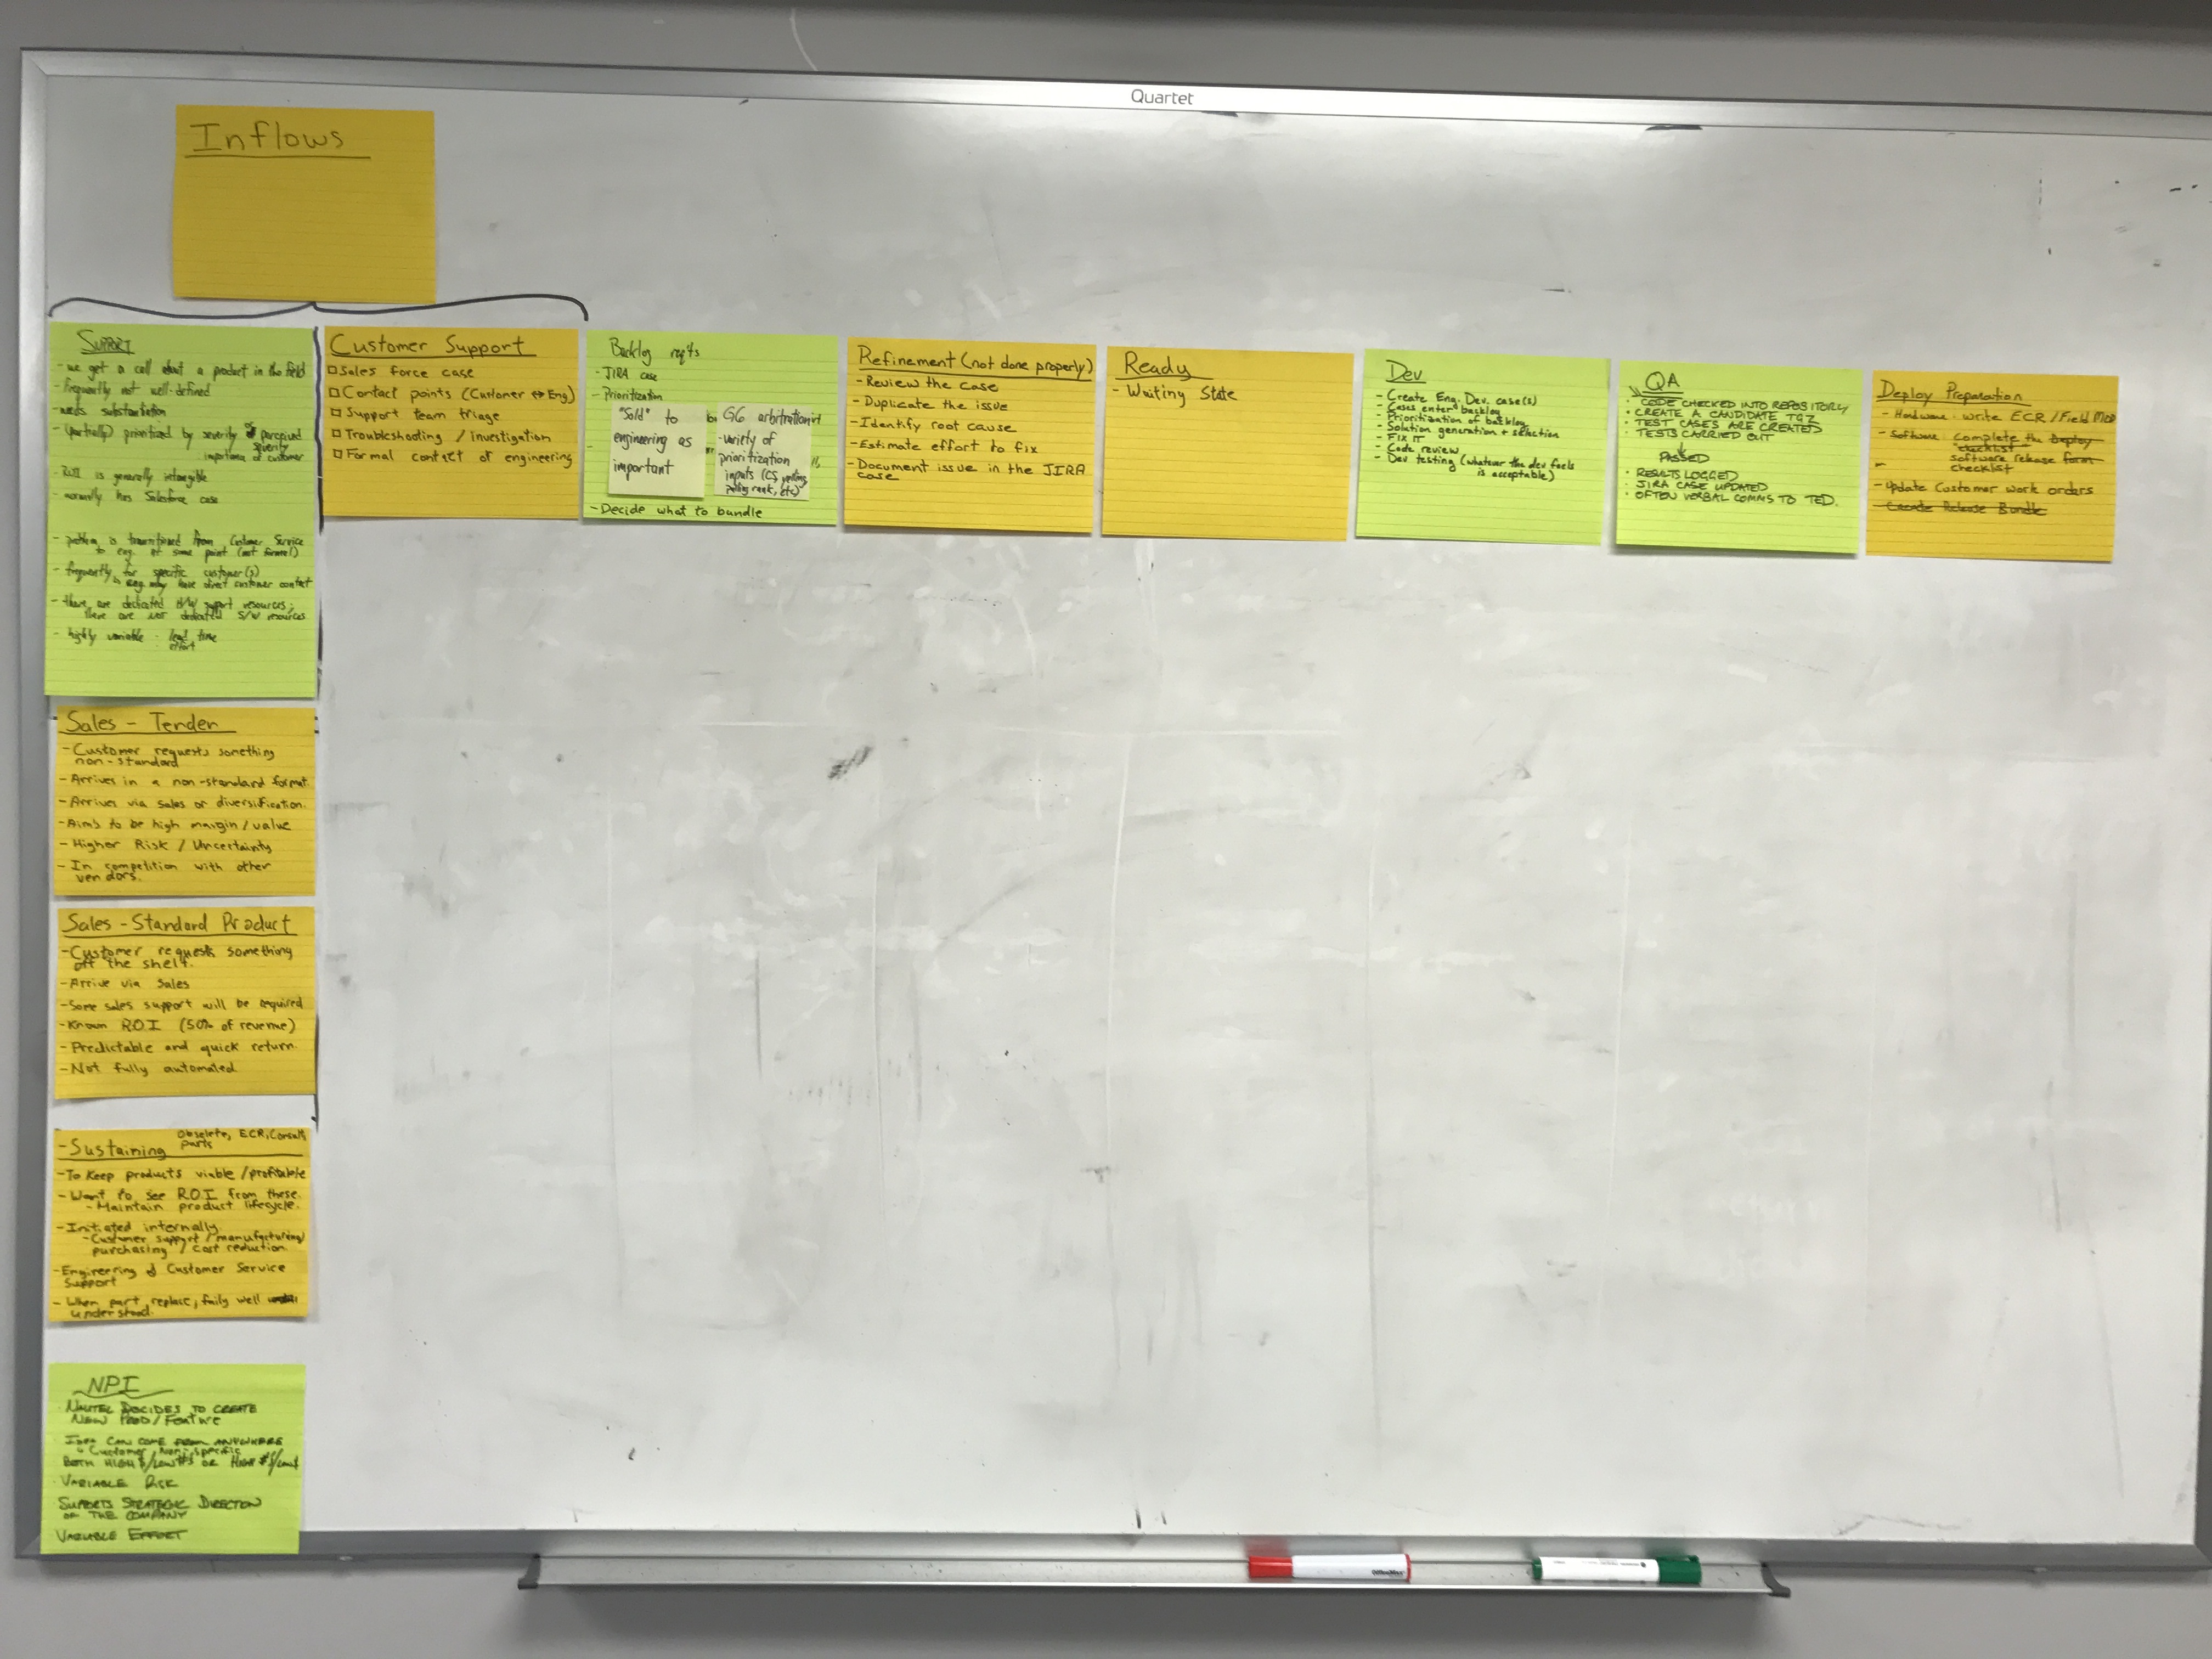 Quartet
Inflows
Support
- we get a call about a product in the field
- frequently not well-defined
- needs substantiation
- (partially) prioritized by severity & perceived severity
importance of customer
- ROI is generally intangible
- normally has Salesforce case
- problem is transitioned from Customer Service
to eng. at some point (not formal)
- frequently for specific customer(s)
↳ eng. may have direct customer contact
- there are dedicated H/W support resources;
there are not dedicated S/W resources
- highly variable : lead time
effort
Sales - Tender
- Customer requests something
non-standard
- Arrives in a non-standard format.
- Arrives via sales or diversification.
- Aims to be high margin / value
- Higher Risk / Uncertainty
- In competition with other
vendors.
Sales - Standard Product
- Customer requests something
off the shelf.
- Arrive via Sales
- Some sales support will be required
- Known R.O.I (50% of revenue)
- Predictable and quick return.
- Not fully automated
- Sustaining
Obselete, ECR, Consult,
parts
- To Keep products viable / profitable
- Want to see R.O.I from these.
- Maintain product lifecycle.
- Initiated internally
- Customer support / manufacturing/
purchasing / cost reduction
- Engineering & Customer Service
Support
- When part replace, faily well
understood.
NPI
Nautel Decides to create
New Prod / Feature
Idea can come from anywhere
↳ Customer Non-specific
Variable Risk
Supports Strategic Direction
of the company
Variable Effort
Customer Support
□ Sales force case
□ Contact points (Customer ↔ Eng)
□ Support team triage
□ Troubleshooting / investigation
□ Formal contact of engineering
Backlog req'ts
- JIRA case
- Prioritization
"Sold" to
engineering as
important
GG arbitration
- variety of
prioritization
inputs (CS,
etc)
- Decide what to bundle
Refinement (not done properly)
- Review the case
- Duplicate the issue
- Identify root cause
- Estimate effort to fix
- Document issue in the JIRA
case
Ready
- Waiting State
Dev
- Create Eng. Dev. case(s)
- Cases enter backlog
- Prioritization of backlog
- Solution generation + selection
- FIX IT
- Code review
- Dev testing (whatever the dev feels
is acceptable)
QA
· CODE CHECKED INTO REPOSITORY
· CREATE A CANDIDATE TGZ
· TEST CASES ARE CREATED
· TESTS CARRIED OUT
↓
PASSED
· RESULTS LOGGED
· JIRA CASE UPDATED
· OFTEN VERBAL COMMS TO TED.
Deploy Preparation
- Hardware: write ECR / Field MOD
- Software: Complete the Deploy
checklist
software release form
checklist
- Update Customer work orders
- Create Release Bundle